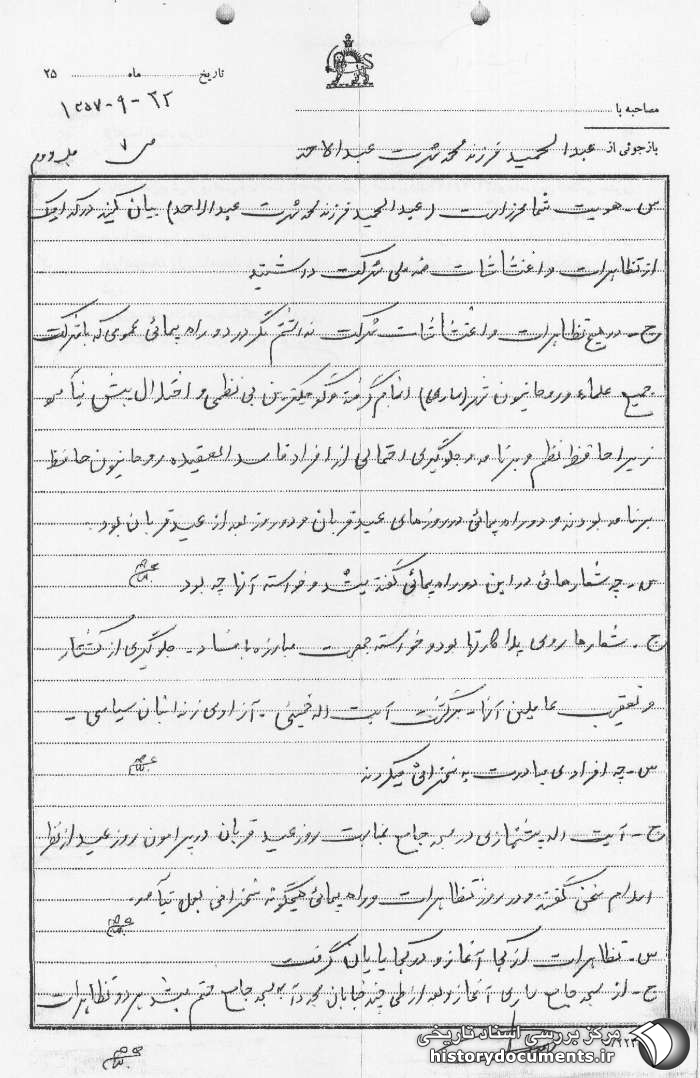 تاریخ ماه ۲۵
۲۲-۹-۱۳۵۷
مصاحبه با
بازجوئی از عبدالحمید فرزند محمد شهرت عبدالاحد ص ۷ جلد دوم
س- هویت شما محرز است (عبدالحمید فرزند محمد شهرت عبدالاحد) بیان کنید در کدامیک
از تظاهرات و اغتشاشات ضد ملی شرکت داشتید
ج- در هیچ تظاهرات و اغتشاشات شرکت نداشتم مگر در دو راه پیمائی عمومی که با شرکت
جمیع علماء و روحانیون شهر (ساری) انجام گرفته و کوچکترین بی نظمی و اختلال پیش نیامد
زیرا حافظ نظم و برنامه و جلوگیری احتمالی از افراد فاسد العقیده روحانیون حافظ
برنامه بودند و دو راه پیمائی در روزهای عید قربان و دو روز بعد از عید قربان بود.
س- چه شعارهائی در این دو راه پیمائی گفته میشد و خواسته آنها چه بود
ج- شعارها روی پلاکارتها بود و خواسته جمعیت مبارزه با فساد - جلوگیری از کشتار
و تعقیب عاملین آنها - برگشت آیت اله خمینی - آزادی زندانیان سیاسی -
س- چه افرادی مبادرت به سخنرانی میکردند
ج- آیت اله پیشنمازی در مسجد جامع بمناسبت روز عید قربان در پیرامون روز عید از نظر
اسلام سخن گفتند و در روز تظاهرات و راه پیمائی هیچگونه سخنرانی بعمل نیامد.
س- تظاهرات از کجا آغاز و در کجا پایان گرفت
ج- از مسجد جامع ساری آغاز و بعد از طی چند خیابان مجدداً به مسجد جامع ختم میشد هر دو تظاهرات
مرکز بررسی اسناد تاریخی
historydocuments.ir